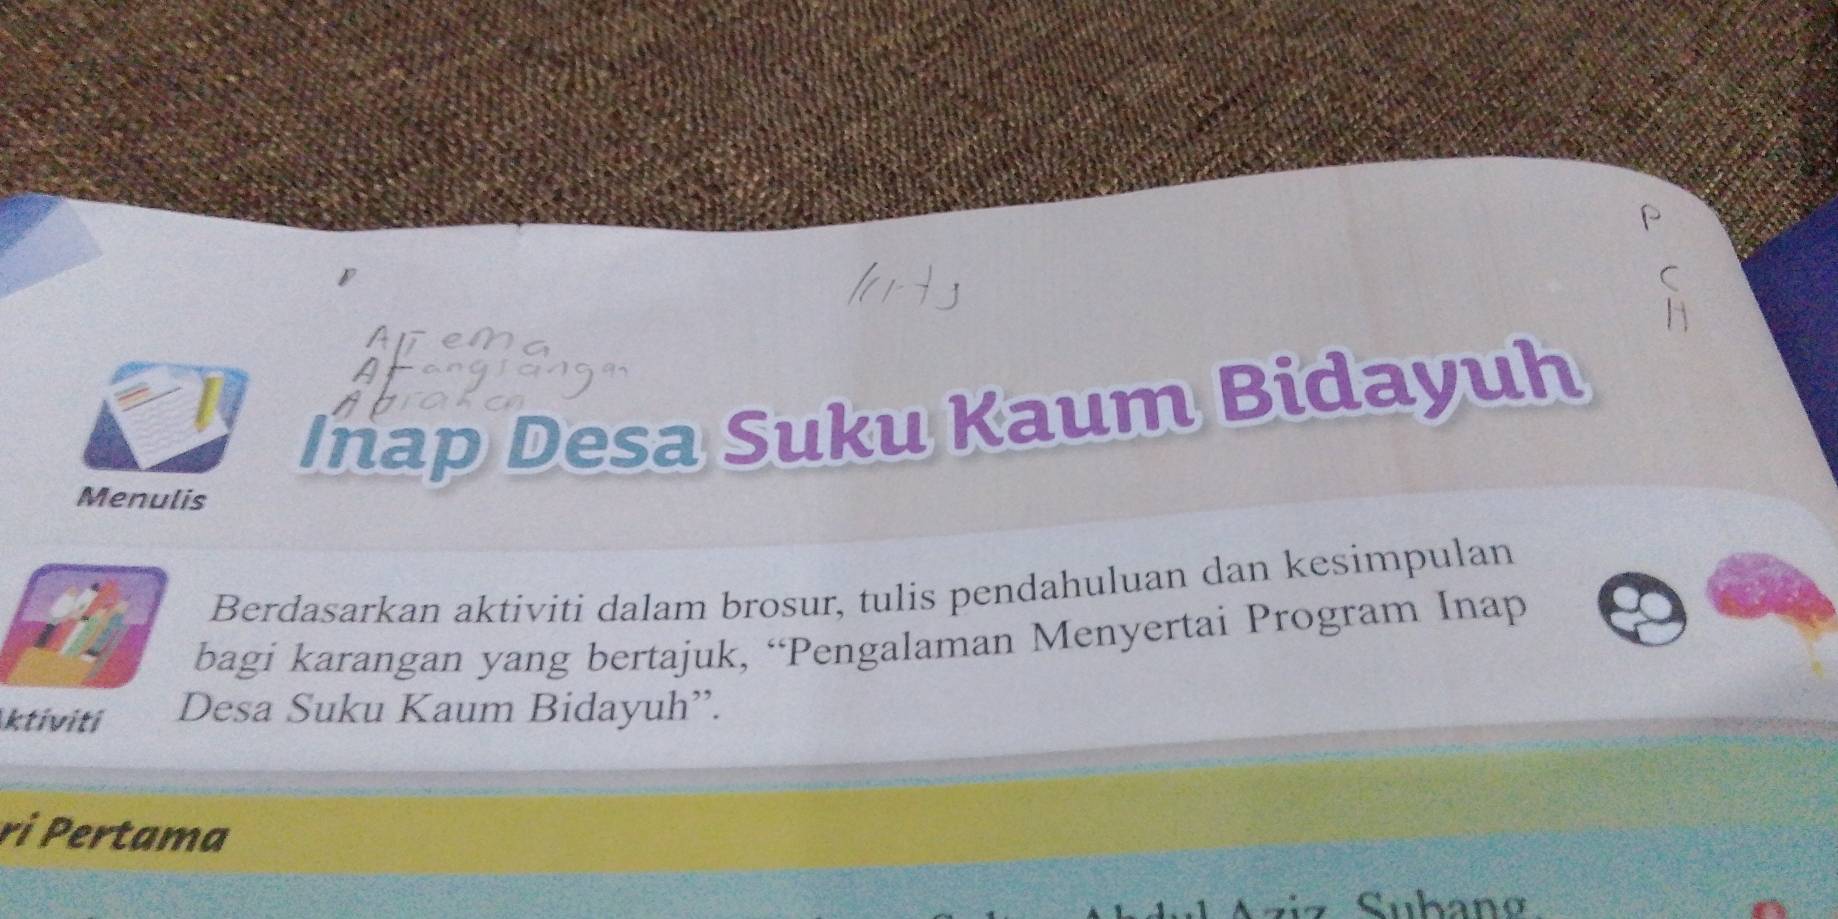 P
C
H
Inap Desa Suku Kaum Bidayuh
Menulis
Berdasarkan aktiviti dalam brosur, tulis pendahuluan dan kesimpulan
bagi karangan yang bertajuk, “Pengalaman Menyertai Program Inap
Desa Suku Kaum Bidayuh”.
ktiviti
ri Pertama
Abdul Aziz, Subang